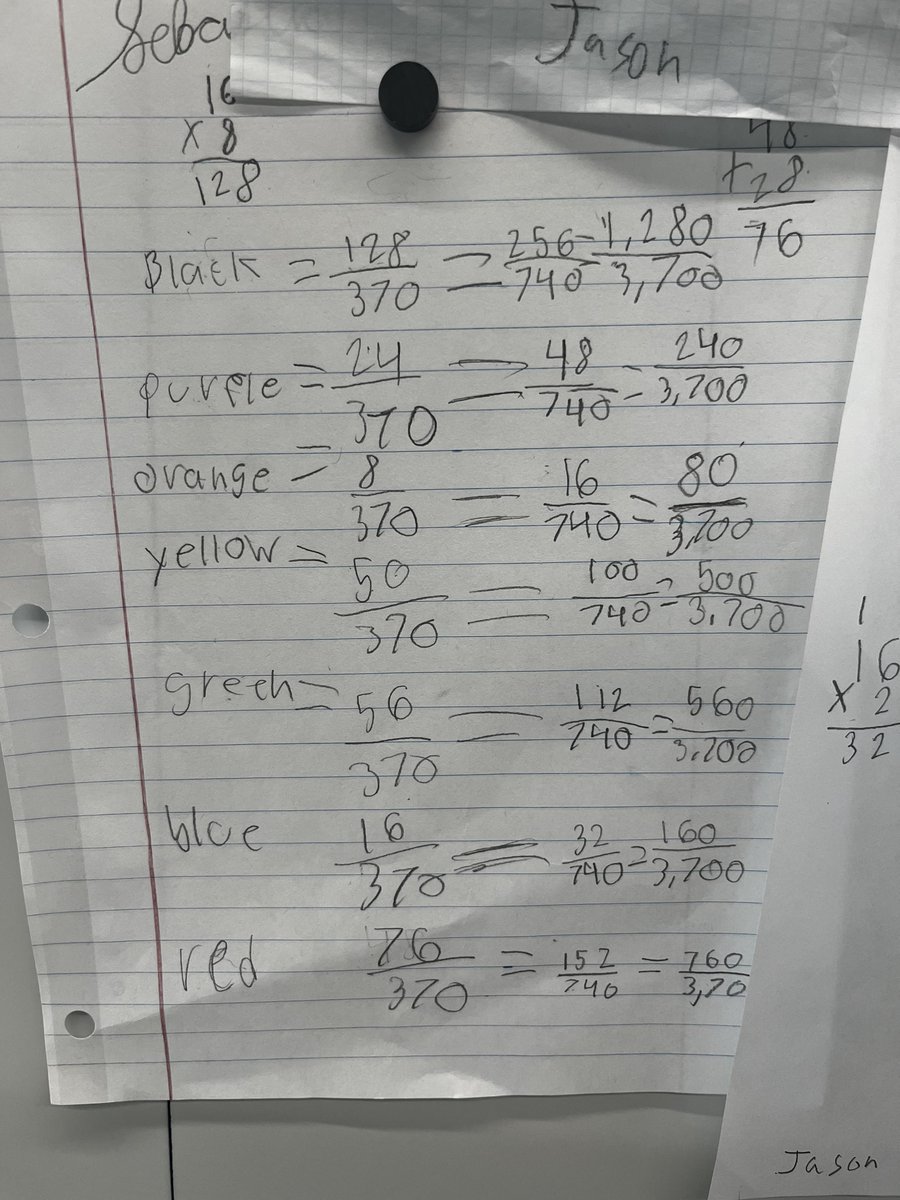 Seba
Jason
16
x 8
128
48
+28
76
Black = 128/370 = 256/740 = 1,280/3,700
purple = 24/370 = 48/740 = 240/3,700
orange = 8/370 = 16/740 = 80/3,700
yellow = 50/370 = 100/740 = 500/3,700
green = 56/370 = 112/740 = 560/3,700
blue 16/370 = 32/740 = 160/3,700
red 76/370 = 152/740 = 760/3,70
1
16
x 2
32
Jason